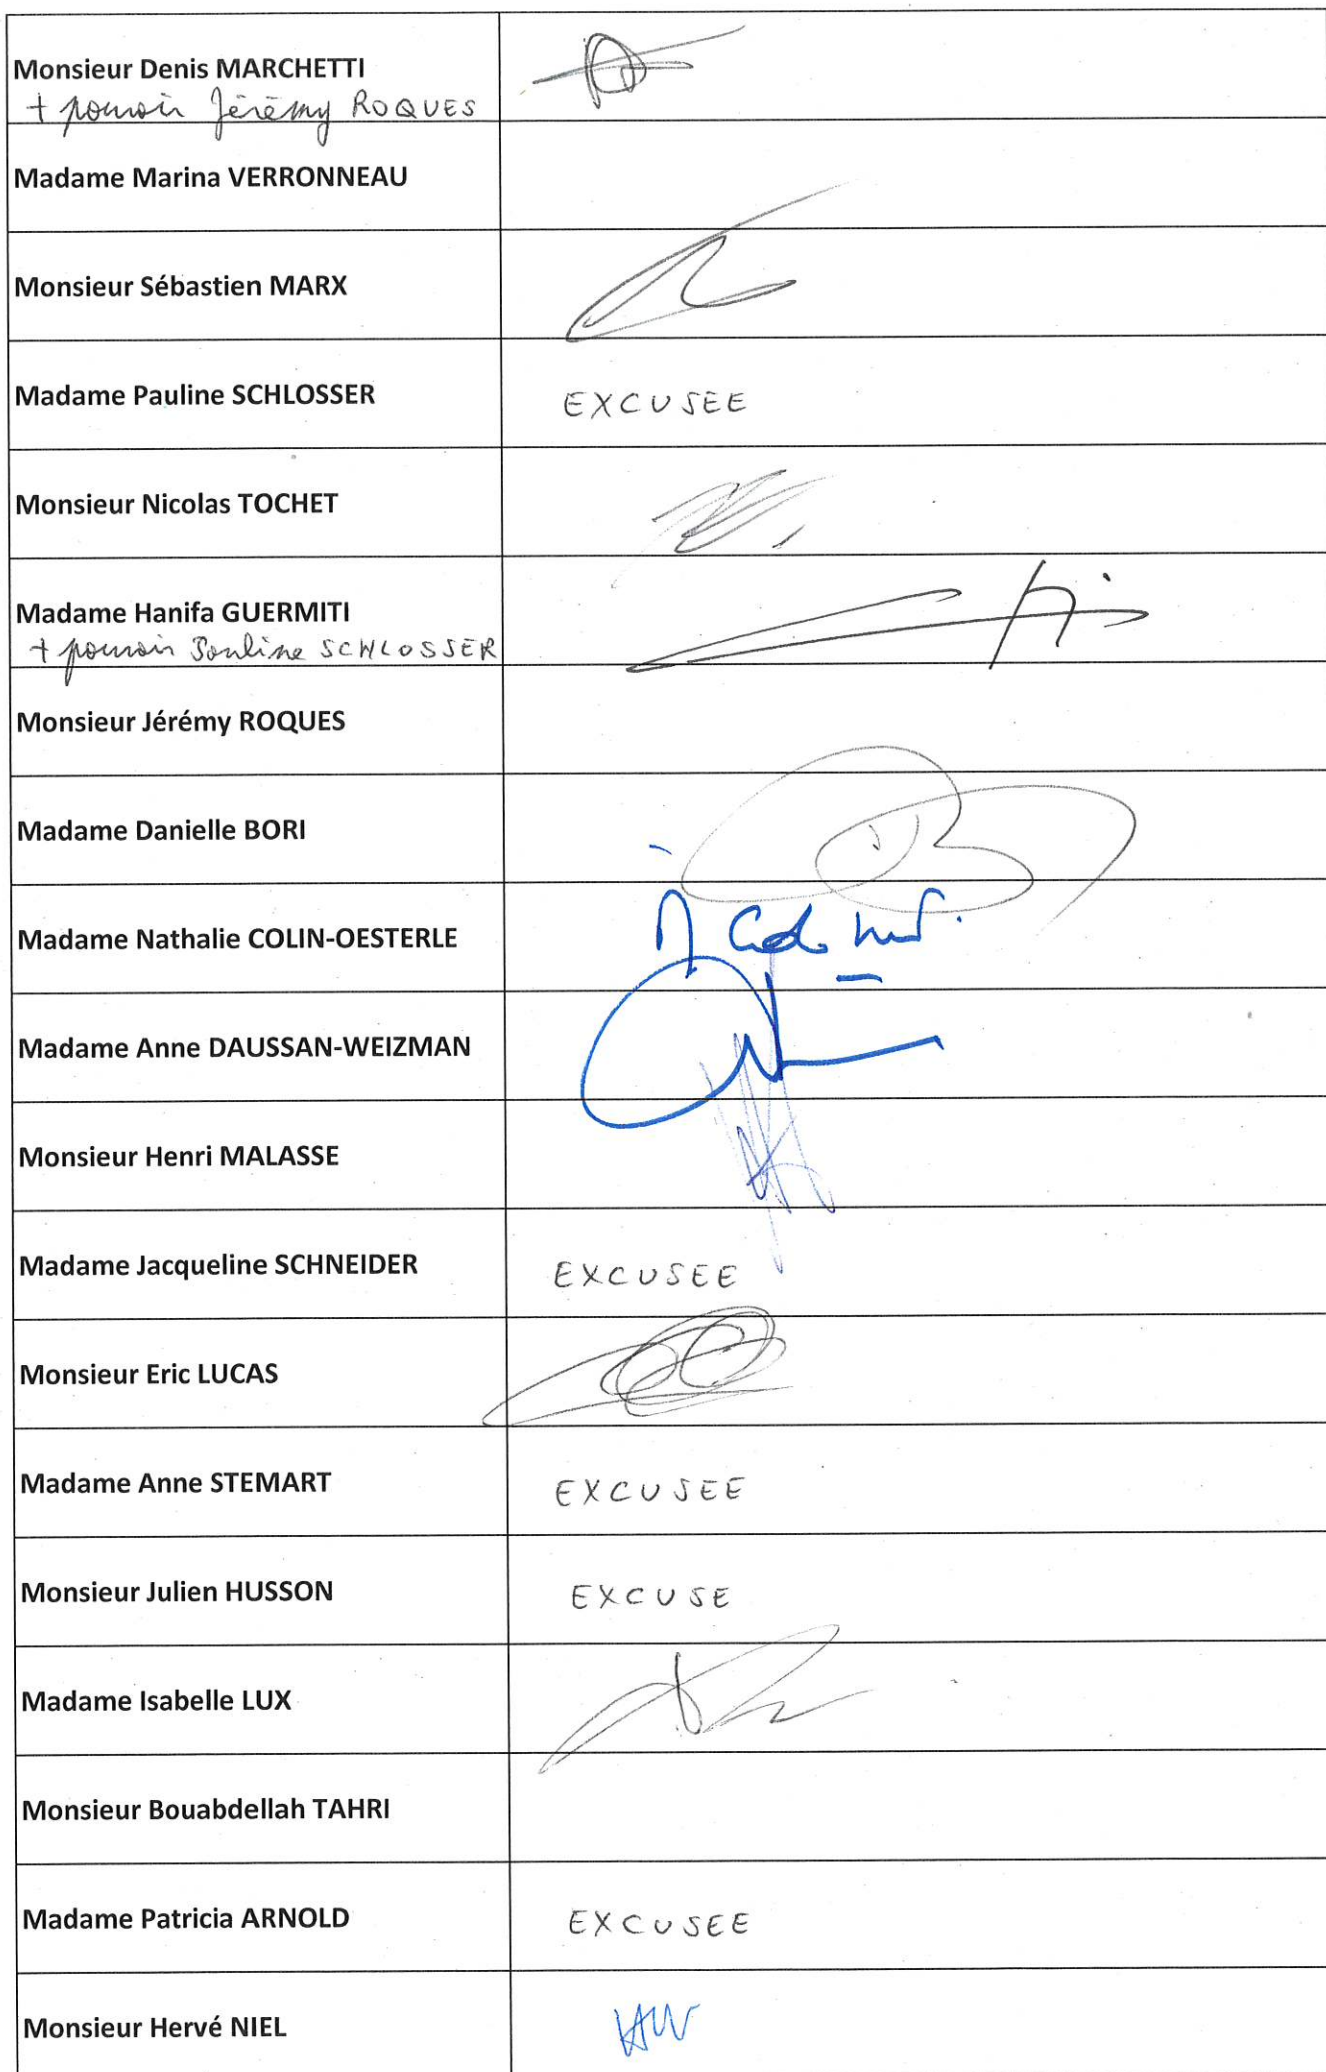 Monsieur Denis MARCHETTI
+ pouvoir Jérémy ROQUES
Madame Marina VERRONNEAU
Monsieur Sébastien MARX
Madame Pauline SCHLOSSER
EXCUSEE
Monsieur Nicolas TOCHET
Madame Hanifa GUERMITI
+ pouvoir Pauline SCHLOSSER
Monsieur Jérémy ROQUES
Madame Danielle BORI
Madame Nathalie COLIN-OESTERLE
Madame Anne DAUSSAN-WEIZMAN
Monsieur Henri MALASSE
Madame Jacqueline SCHNEIDER
EXCUSEE
Monsieur Eric LUCAS
Madame Anne STEMART
EXCUSEE
Monsieur Julien HUSSON
EXCUSE
Madame Isabelle LUX
Monsieur Bouabdellah TAHRI
Madame Patricia ARNOLD
EXCUSEE
Monsieur Hervé NIEL